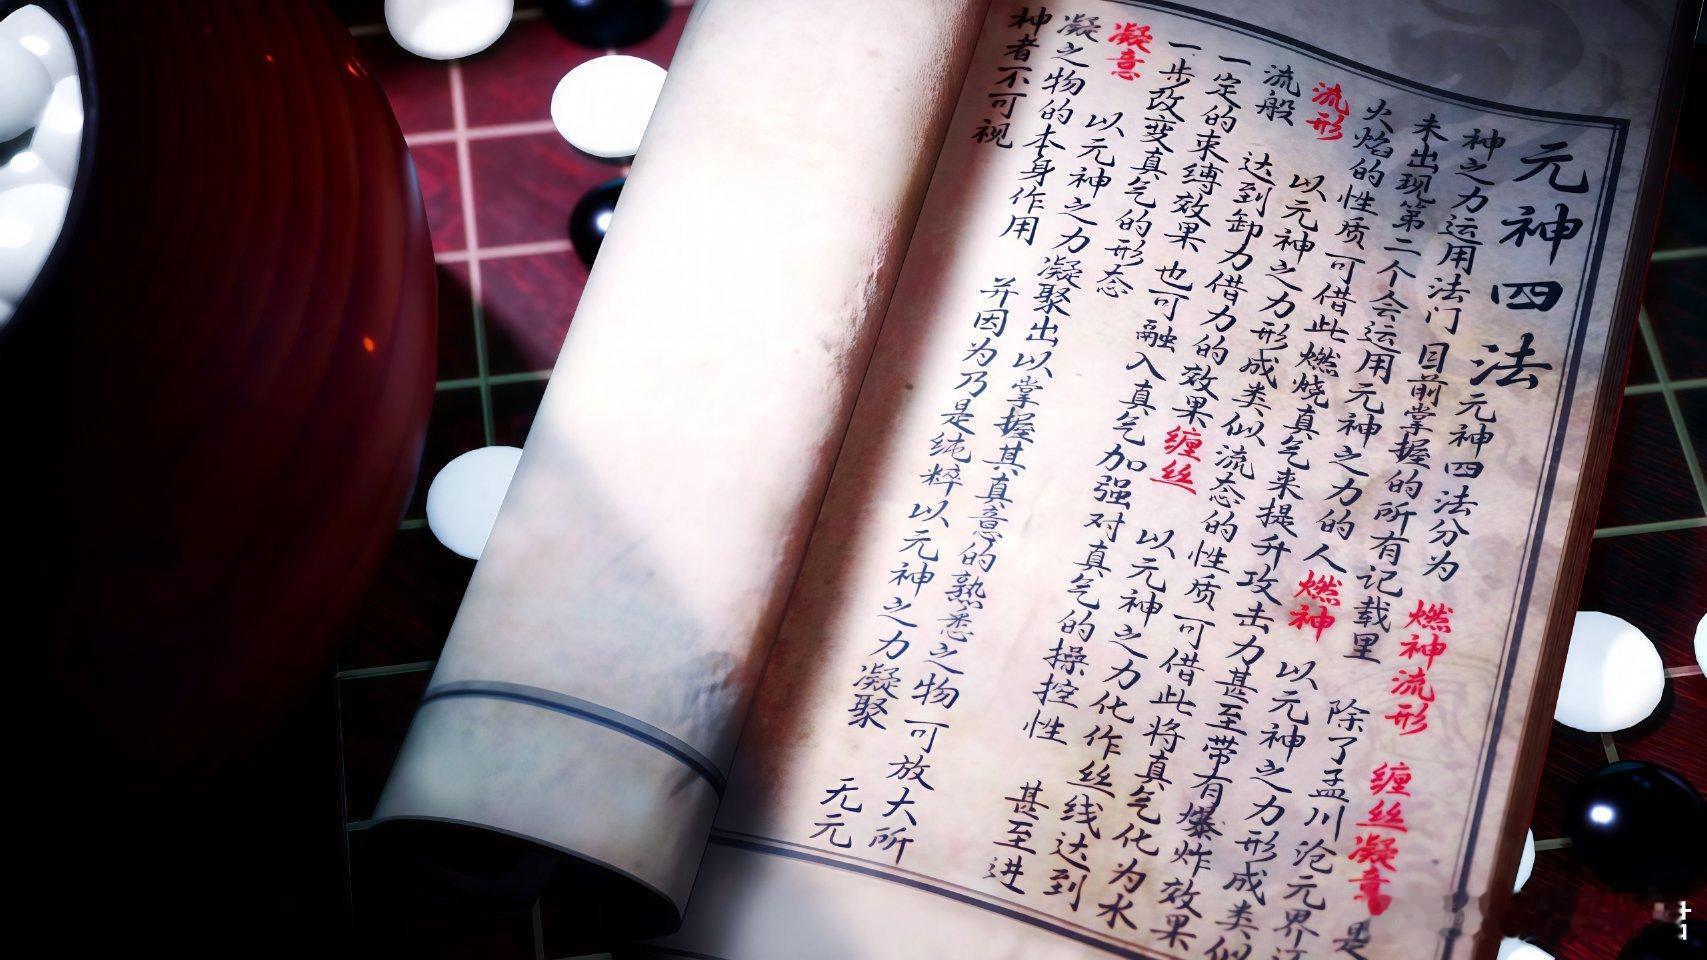 元神四法 元神四法分为 燃神流形 缠丝凝意 是
神之力运用法门 目前掌握的所有记载里 除了孟川沧元界还
未出现第二个会运用元神之力的人 燃神 以元神之力形成类似
火焰的性质可借此燃烧真气来提升攻击力甚至带有爆炸效果
流形 以元神之力形成类似流态的性质可借此将真气化为水
流般 达到卸力借力的效果 缠丝 以元神之力化作丝线达到
一定的束缚效果 也可融入真气加强对真气的操控性 甚至进
一步改变真气的形态
凝意 以元神之力凝聚出以掌握其真意的熟悉之物可放大所
凝之物的本身作用 并因为乃是纯粹以元神之力凝聚 无元
神者不可视